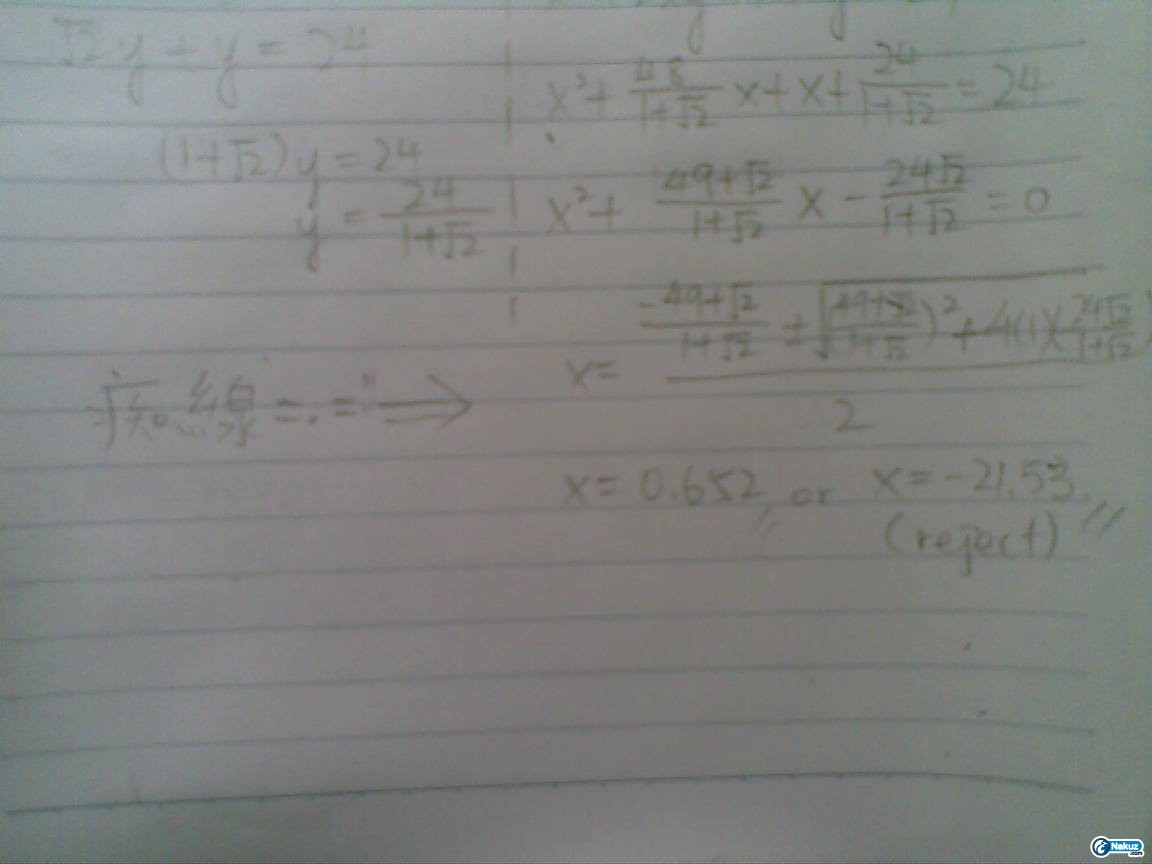 √2 y + y = 24
(1+√2) y = 24
y = 24/(1+√2)
x² + 48/(1+√2) x + x + 24/(1+√2) = 24
x² + (49+√2)/(1+√2) x - 24√2/(1+√2) = 0
x = (-(49+√2)/(1+√2) ± √(((49+√2)/(1+√2))² + 4(1)(24√2/(1+√2))))/2
線 =. = ⇒
x = 0.652 // or x = -21.53 //
(reject)
Nakuz.com